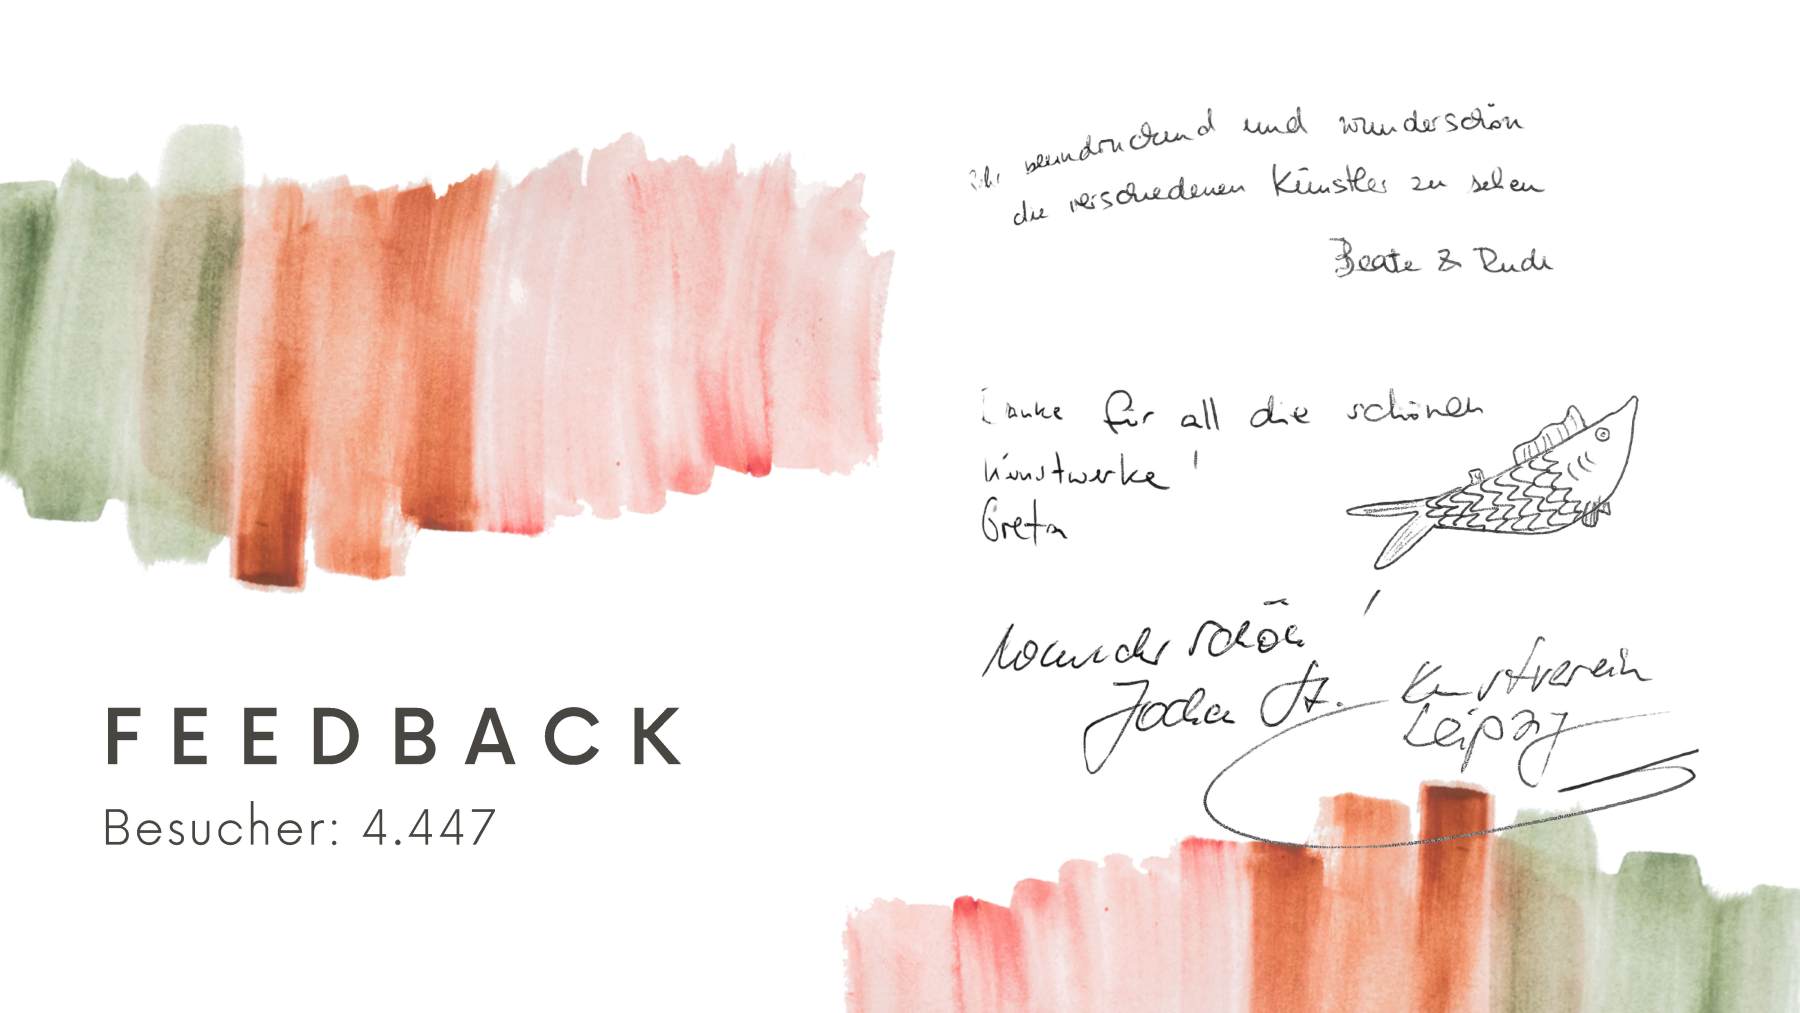 FEEDBACK
Besucher: 4.447
beeindruckend und wunderschön
die verschiedenen Künstler zu sehen
Beate & Rudi
Danke für all die schönen
Kunstwerke!
Greta
Wunderschön!
St. Kunstverein
Leipzig